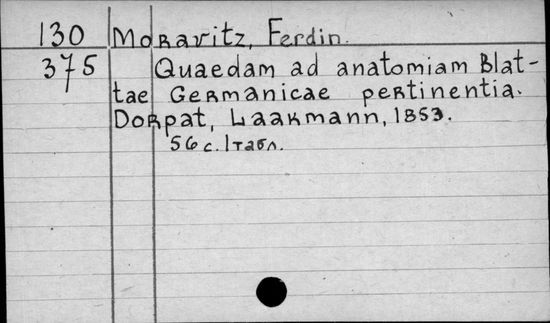 130 Moravitz, Ferdin.
375 Quaedam ad anatomiam Blat-
tae Germanicae pertinentia.
Dorpat, Laakmann, 1853.
56 с. 1 табл.